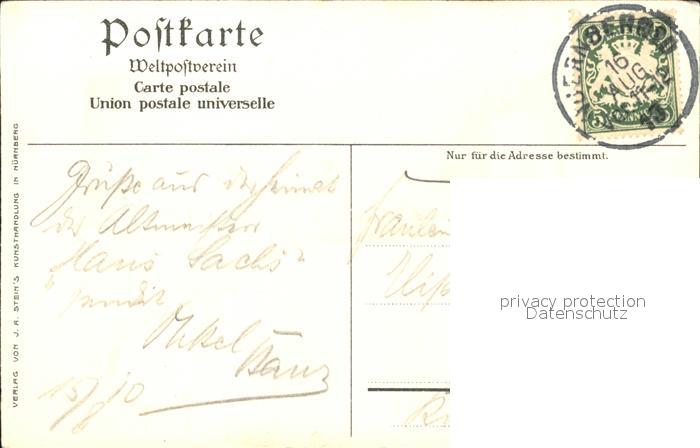 Postkarte
Weltpostverein
Carte postale
Union postale universelle
NUERNBERG
16
AUG.
11-12
10
5
Nur für die Adresse bestimmt.
VERLAG VON J. A. STEIN'S KUNSTHANDLUNG IN NÜRNBERG
Grüße aus der Heimat
der Altmeister
"Hans Sachs"
sendet
Onkel
Hans
15/8 10
Fräulein
privacy protection
Datenschutz